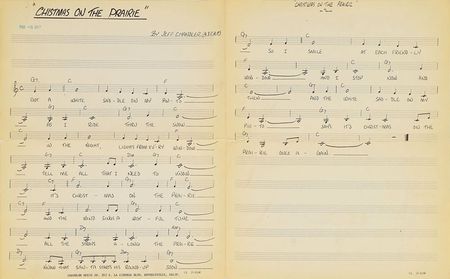 "CHISTMAS ON THE PRAIRIE"
BY JEFF CHANDLER (ASCAP)
G7 C
GOT A WHITE SAD-DLE ON MY PIN-TO
AS I RIDE THRU THE SNOW
IN THE NIGHT, LIGHTS FROM EV'RY WIN-DOW
TELL ME ALL THAT I NEED TO KNOW
IT'S CHRIST-MAS ON THE PRAI-RIE
AND THE WIND SINGS A TUNE
ALL THE STARS A-LONG THE PRAI-RIE
KNOW THAT SAN-TA STARTS HIS ROUND-UP SOON
"CHISTMAS ON THE PRAIRIE"
G7 C
SO I SMILE AT EACH FRIEND-LY
WIN-DOW AND I STOP NOW AND
THEN AND THE WHITE SAD-DLE ON MY
PIN-TO SAYS IT'S CHRIST-MAS ON THE
PRAI-RIE ONCE A-GAIN